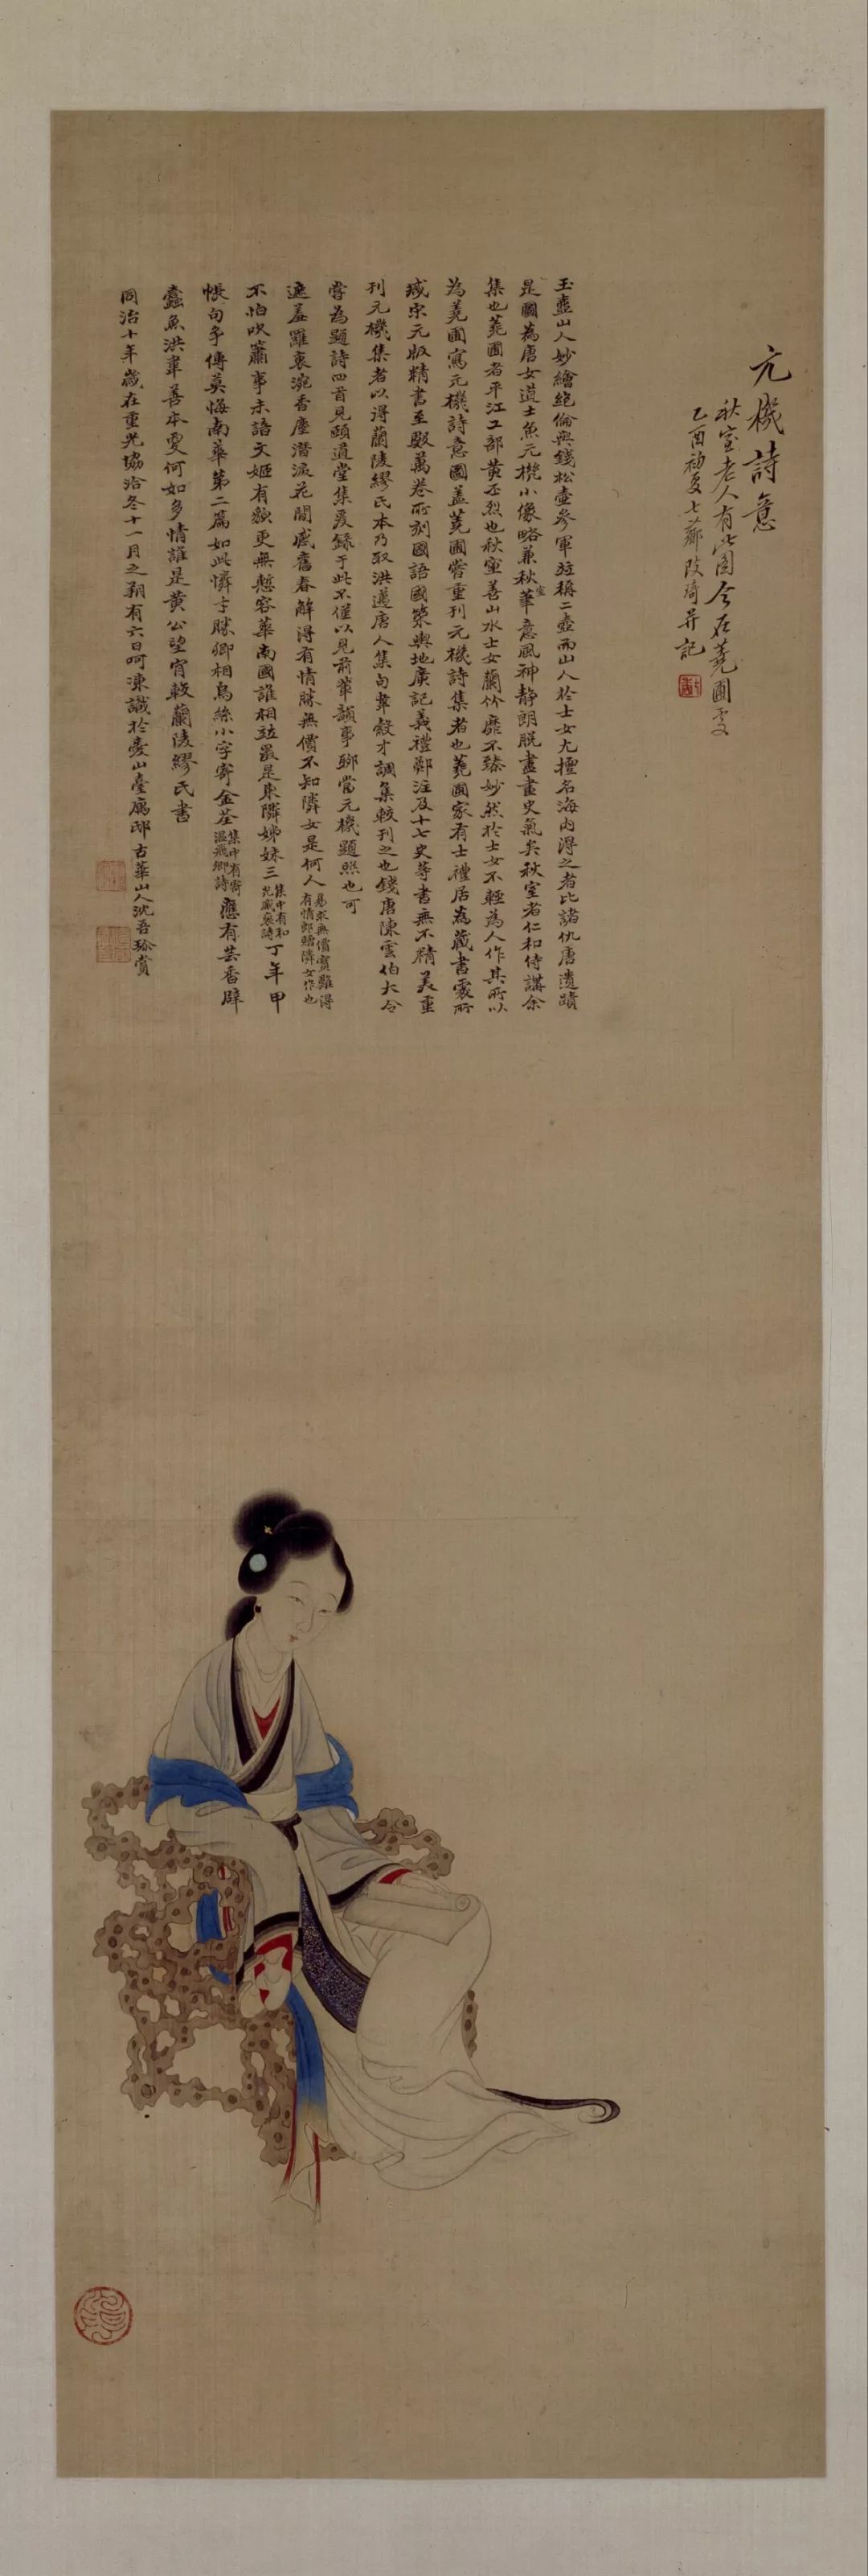 元機詩意
秋室老人有此圖今在蕘圃處
乙酉初夏七薌改琦并記
玉壺山人妙繪絕倫與錢松壺參軍竝稱二壺而山人於士女尤擅名海內得之者比諸仇唐遺蹟
是圖為唐女道士魚元機小像略兼秋室華意風神静朗脫盡畫史氣矣秋室者仁和侍講余
集也蕘圃者平江工部黃丕烈也秋室善山水士女蘭竹靡不臻妙然於士女不輕為人作其所以
為蕘圃寫元機詩意圖蓋蕘圃嘗重刊元機詩集者也蕘圃家有士禮居為藏書處所
藏宋元版精書至數萬卷所刻國語國策輿地廣記義禮鄭注及十七史等書無不精美重
刊元機集者以得蘭陵繆氏本乃取洪邁唐人集句韋縠才調集較刊之也錢唐陳雲伯大令
嘗為題詩四首見頤道堂集爰錄于此不僅以見前輩韻事聊當元機題照也可
遮羞羅裏涴香塵潛淚花間感舊春解得有情勝無價不知隣女是何人易求無價寶難得有情郎贈隣女作也
不怕吹簫事未諧文姬有歎更無慙容華南國誰相竝最是東隣姊妹三集中有和光威裒詩丁年甲
帳句爭傳莫悔南華第二篇如此憐才勝卿相烏絲小字寄金荃集中有寄溫飛卿詩應有芸香辟
蠹魚洪韋善本更何如多情誰是黃公望宵較蘭陵繆氏書
同治十年歲在重光協洽冬十一月之朔有六日呵凍識於愛山臺寓邸古華山人沈吾珍賞